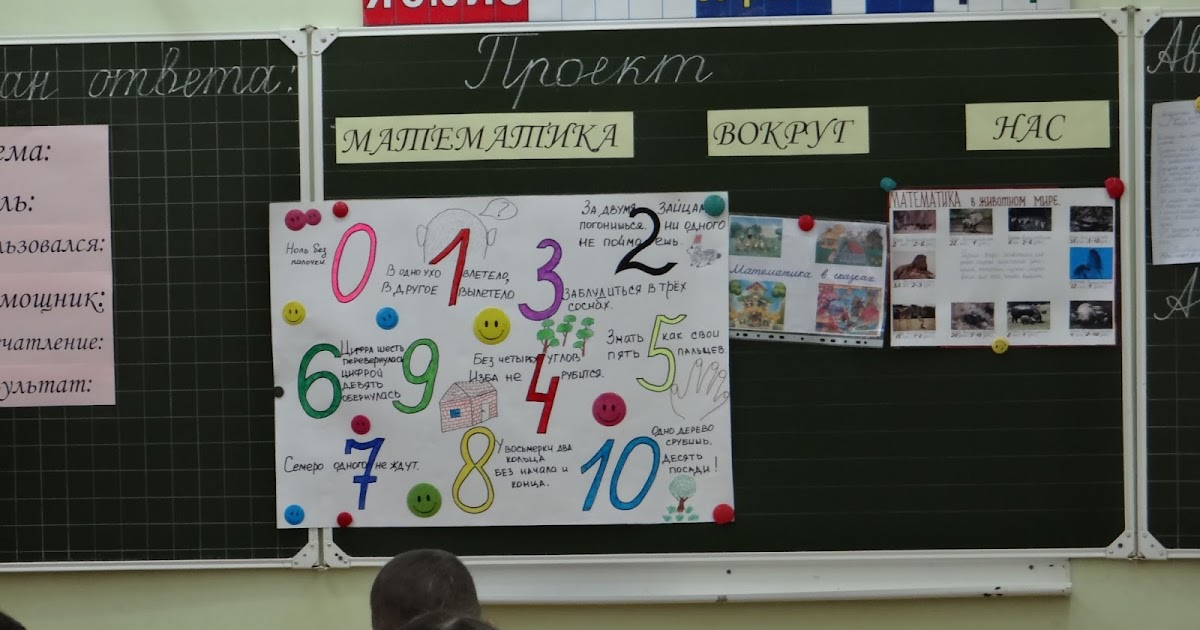 ан ответа:
ема:
ль:
льзовался:
мощник:
чатление:
ультат:
Проект
МАТЕМАТИКА ВОКРУГ НАС
Ноль без
палочки
0
В одно ухо влетело,
В другое вылетело
1
За двумя зайцами
погонишься, ни одного
не поймаешь.
2
3
Заблудиться в трёх
соснах.
6
Цифра шесть
перевернулась
цифрой
девять
обернулась
9
Без четырех углов
Изба не рубится.
4
Знать как свои
пять пальцев
5
Семеро одного не ждут.
7
8
У восьмерки два
кольца
без начала и
конца.
10
Одно дерево
срубишь,
десять
посади!
Математика в сказках
МАТЕМАТИКА в животном мире.
Ав
А